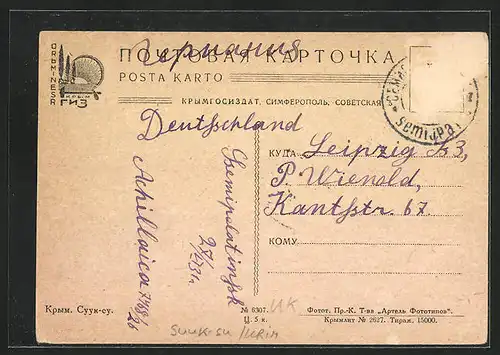 Германия
ПОЧТОВАЯ КАРТОЧКА
POSTA KARTO
ORUMINESR
КРЫМ
ГИЗ
КРЫМГОСИЗДАТ, СИМФЕРОПОЛЬ, СОВЕТСКАЯ
Semipa
Deutschland
КУДА Leipzig S3,
P. Wienold,
Kantstr. 67
КОМУ
Semipalatinsk
Achillaica
Крым. Суук-су.
№ 6307.
Ц. 5 к.
UK
Suuk-su / Krim
Фотот. Пр.-К. Т-ва „Артель Фототипов".
Крымлит № 2627. Тираж. 15000.